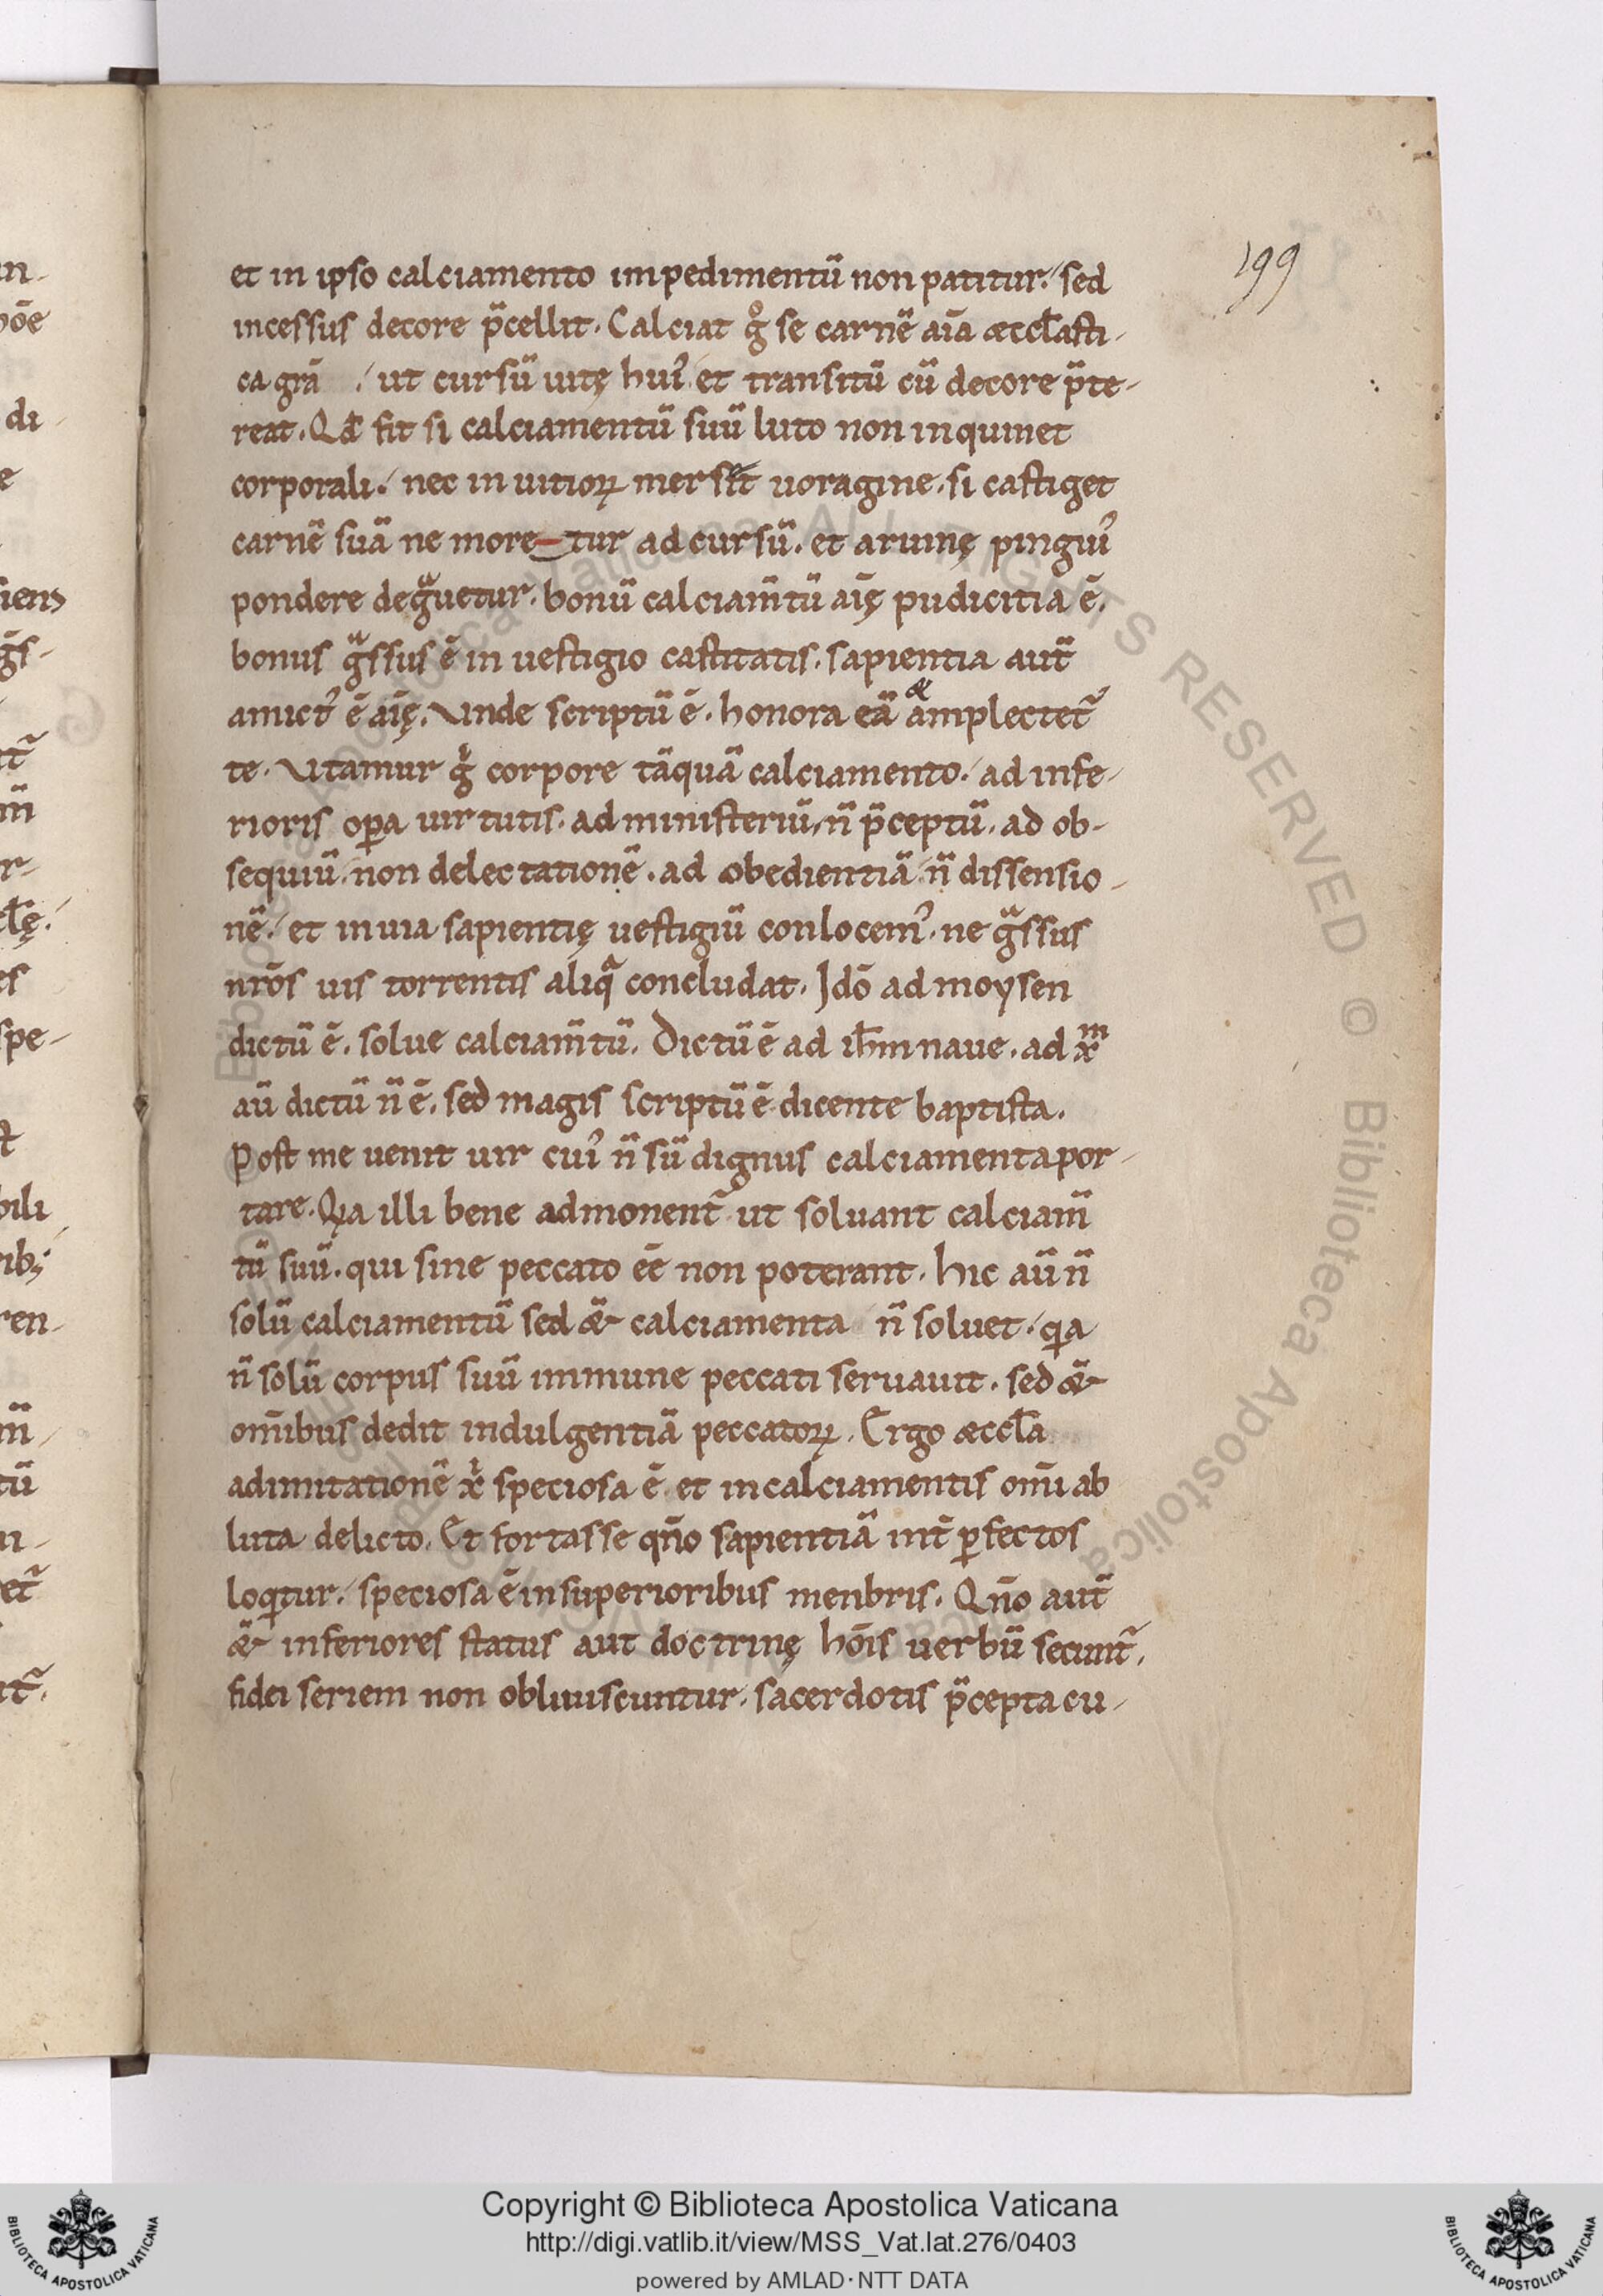 199
et in ipso calciamento impedimentū non patitur. sed
incessus decore p̄cellit. Calciat gͦ se carnē aīa æccl̄asti-
ca grā ut cursū uitę huiꝰ et transitū cū decore p̄te-
reat. Qd̄ fit si calciamentū suū luto non inquinet
corporali. nec in uitioꝝ uoragine. si castiget
carnē suā ne more tur ad cursū. et aruinę pinguiꝰ
pondere degͣuetur. bonū calciam̄tū aīę pudicitia ē.
bonus gͣssus ē in uestigio castitatis. sapientia aut̄
amictꝰ ē aīę. Vnde scriptū ē. honora eā & amplectet᷑
te. Vtamur gͥ corpore tāquā calciamento. ad infe-
rioris oꝑa uirtutis. ad ministeriū, n̄ p̄ceptū. ad ob-
sequiū. non delectationē. ad obedientiā. n̄ dissensio-
nē. et in uia sapientię uestigiū conlocemꝰ. ne gͣssus
nrōs uis torrentis aliqͣ concludat. Idō ad moysen
dictū ē. solue calciam̄tū. Dictū ē ad ih̄m naue. ad xͫ
aū dictū n̄ ē. sed magis scriptū ē dicente baptista.
Post me uenit uir cuiꝰ n̄ sū dignus calciamenta por-
tare. Qͥa illi bene admonent᷑ ut soluant calciam̄
tū suū. qui sine peccato eē non poterant. hic aū n̄
solū calciamentū sed &̄ calciamenta n̄ soluet. qͥa
n̄ solū corpus suū immune peccati seruauit. sed &̄
om̄ibus dedit indulgentiā peccatoꝝ. Ergo æccl̄a
ad imitationē xͥ speciosa ē et in calciamentis om̄i ab
luta delicto. Et fortasse qn̄o sapientiā int̄ ꝑfectos
loqͥtur. speciosa ē in superioribus menbris. Qn̄o aut̄
&̄ inferiores status aut doctrinę hōis uerbū secunt᷑.
fidei seriem non obliuiscuntur. sacerdotis p̄cepta cu-
in-
di
e
iens
gs-
r-
es
spe-
bili
ren-
Copyright © Biblioteca Apostolica Vaticana
http://digi.vatlib.it/view/MSS_Vat.lat.276/0403
powered by AMLAD·NTT DATA
BIBLIOTECA APOSTOLICA VATICANA
BIBLIOTECA APOSTOLICA VATICANA